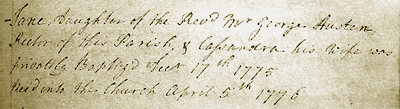 Jane, Daughter of the Revd Mr George Austen
Rector of this Parish, & Cassandra his Wife was
privately Baptiz'd Decr 17th 1775
Rec'd into the Church April 5th 1776